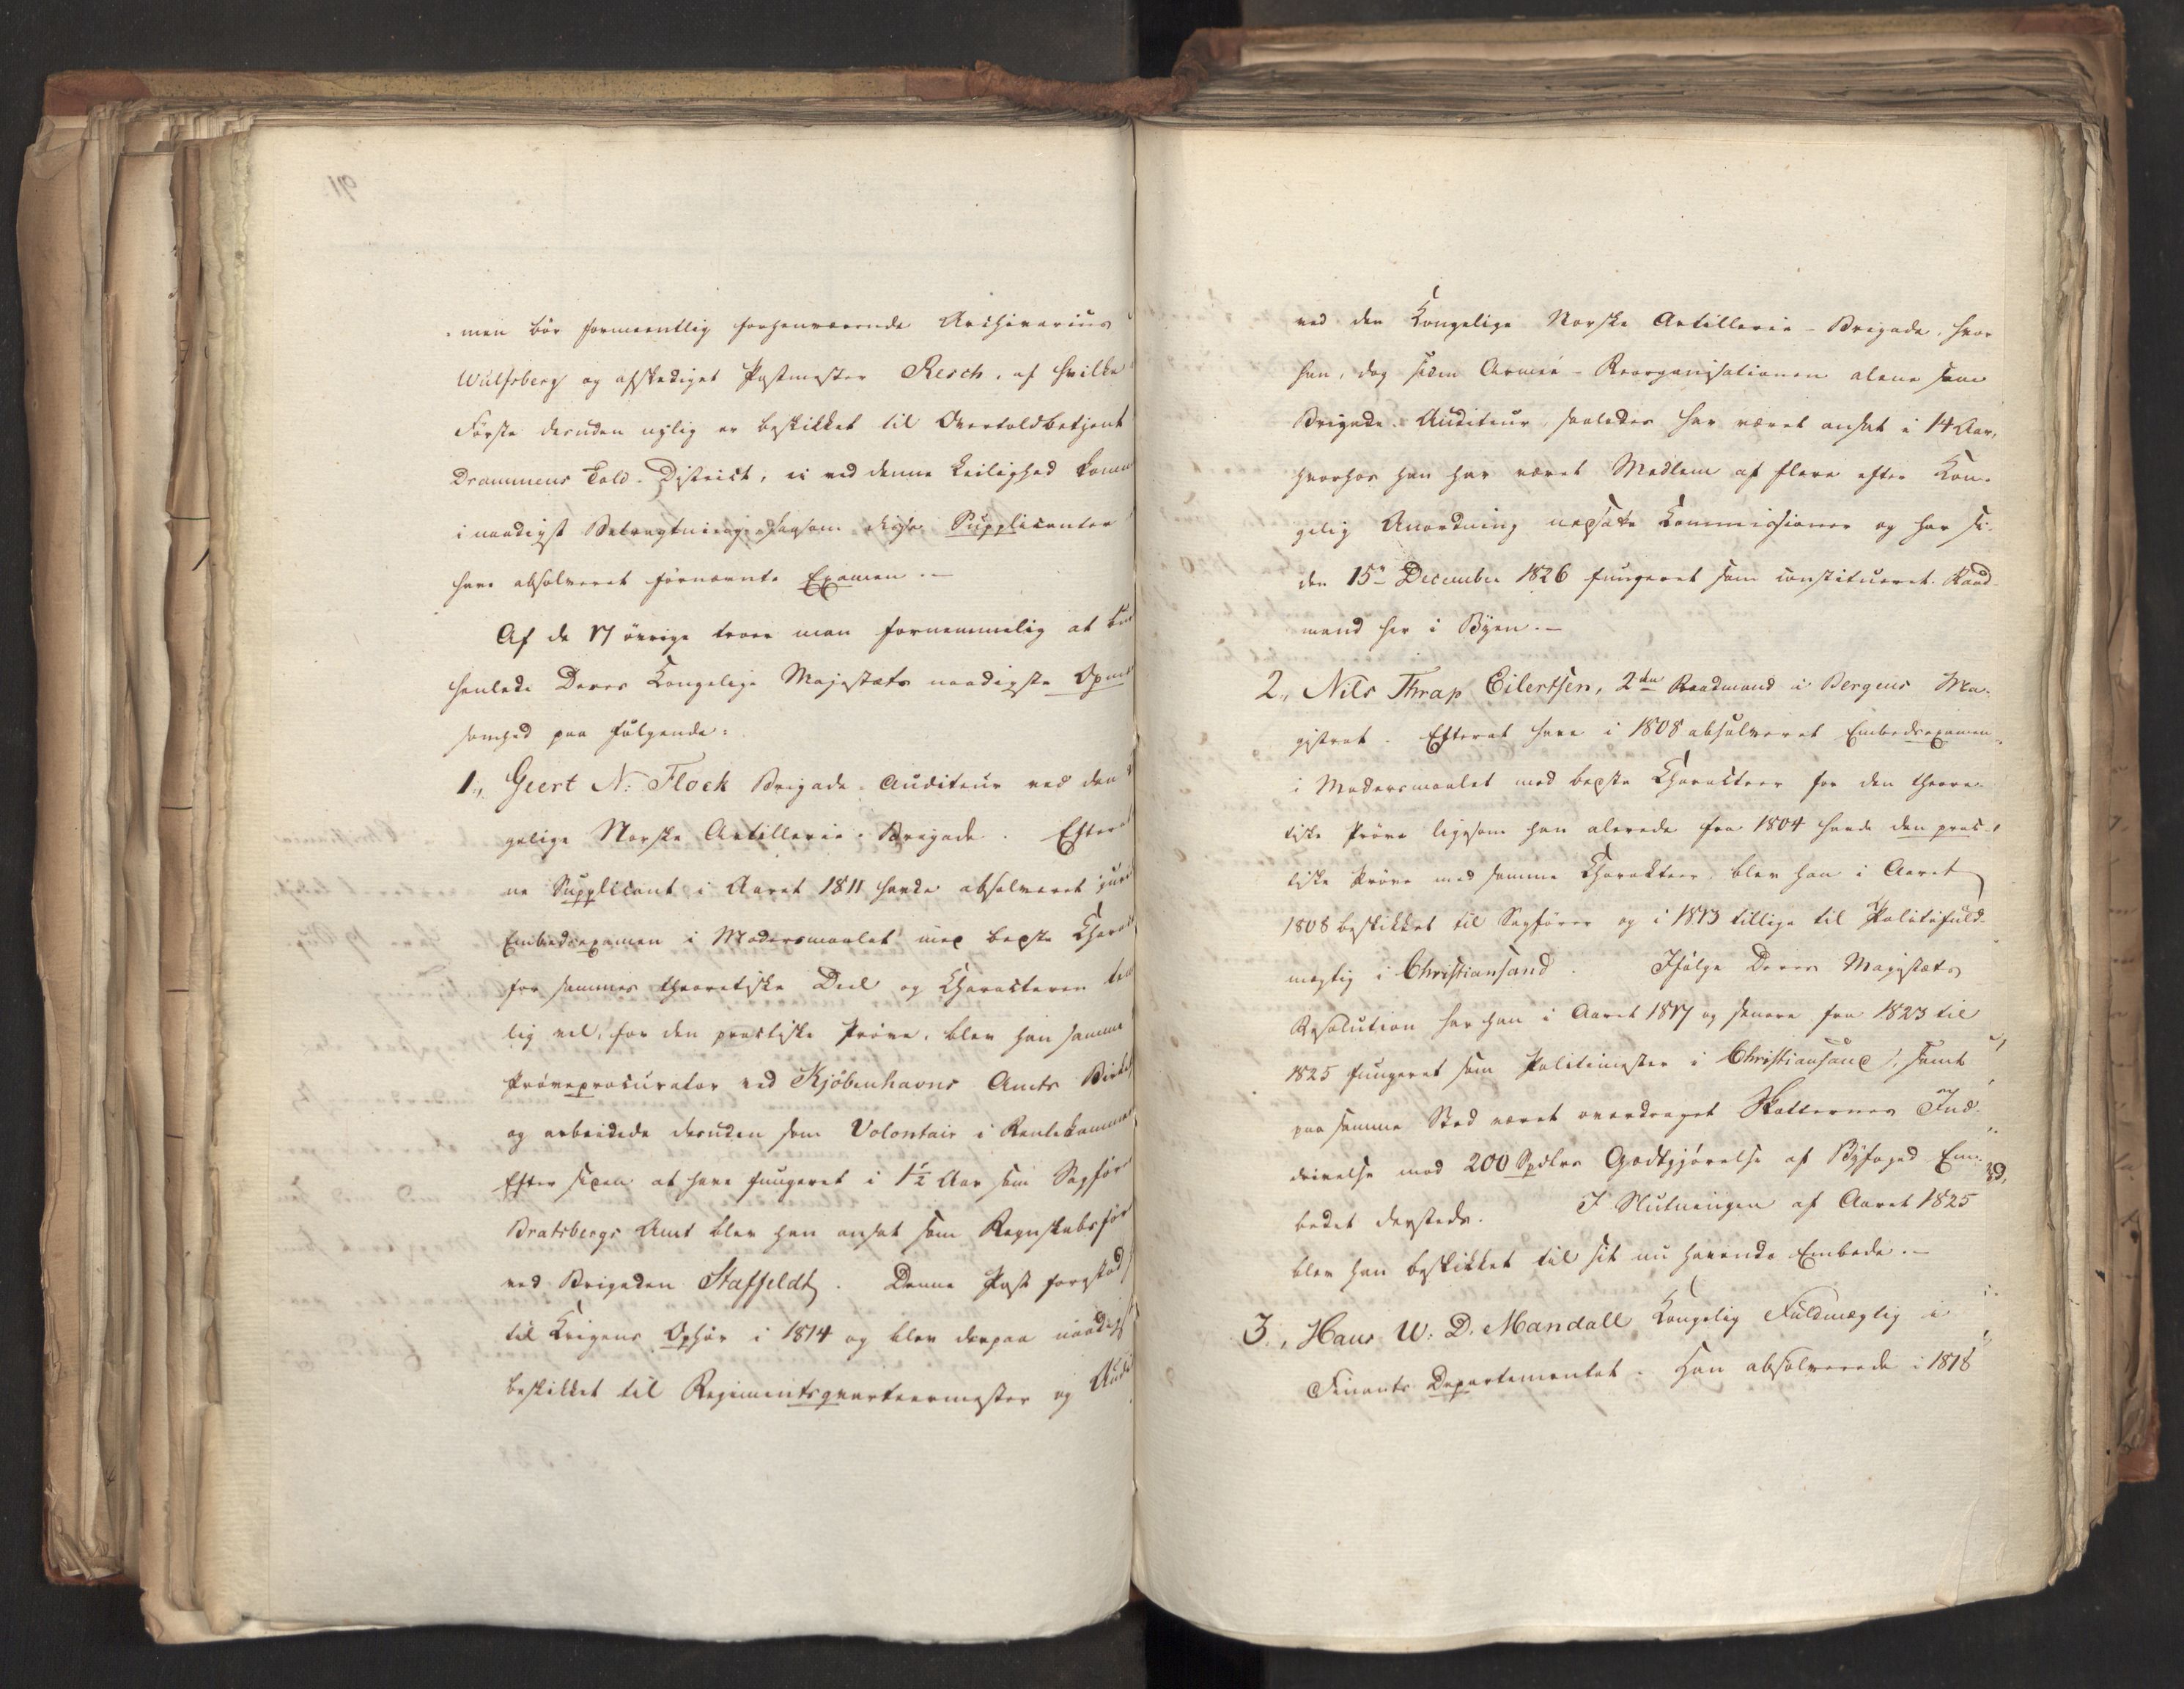 men bör formeentlig forhenværende Archivarius
Wulfsberg og afskediget Postmester Resch, af hvilke
Første desuden nylig er beskikket til Overtoldbetjent
Drammens Told-District, ei ved denne Leilighed komme
i naadigst Betragtning, ligesom disse Supplicanter
have absolveret førnævnte Examen.—
Af de 17 øvrige troer man fornemmelig at
henlede Deres Kongelige Majestæts naadigste Opm
somhed paa følgende:
1., Geert N. Flock Brigade-Auditeur ved den
gelige Norske Artillerie-Brigade. Efterat
ne Supplicant i Aaret 1811 havde absolveret juri
Embedsexamen i Modersmaalet med bedste Charak
for sammes theoretiske Deel og Characteren
lig vel, for den practiske Prøve, blev han samme
Prøveprocurator ved Kjöbenhavns Amts Birke
og arbeidede desuden som Volontair i Rentekammer
Efter siden at have fungeret i 1½ Aar som Sagfør
Bratsbergs Amt blev han ansat som Regnskabsfør
ved Brigaden Staffeldt. Denne Post forestod
til Krigens Ophør i 1814 og blev derpaa naadigst
beskikket til Regimentsqvarteermester og Audi
ved den Kongelige Norske Artillerie-Brigade, hvor
han, dog siden Armee-Reorganisationen alene som
Brigade-Auditeur, saaledes har været ansat i 14 Aar,
hvorhos han har været Medlem af flere efter Kon-
gelig Anordning nedsatte Commissioner og har si-
den 15de December 1826 fungeret som constitueret Raad-
mand her i Byen.—
2., Nils Thrap Eilertsen, 2den Raadmand i Bergens Ma-
gistrat. Efterat have i 1808 absolveret Embedsexamen
i Modersmaalet med bedste Charakteer for den theore-
tiske Prøve ligesom han allerede fra 1804 havde den prac-
tiske Prøve med samme Charakteer, blev han i Aaret
1808 beskikket til Sagfører og i 1813 tillige til Politifuld-
mægtig i Christiansand. Ifølge Deres Majestæts
Resolution har han i Aaret 1817 og senere fra 1823 til
1825 fungeret som Politimester i Christiansand, samt
paa samme Sted været overdraget Skatternes Ind-
drivelse mod 200 Spdlrs Godtgjørelse af Byfoged Em-
bedet dersteds. I Slutningen af Aaret 1825
blev han beskikket til sit nu havende Embede.—
3., Hans W. D. Mandall Kongelig Fuldmægtig i
Finants Departementet. Han absolverede i 1818